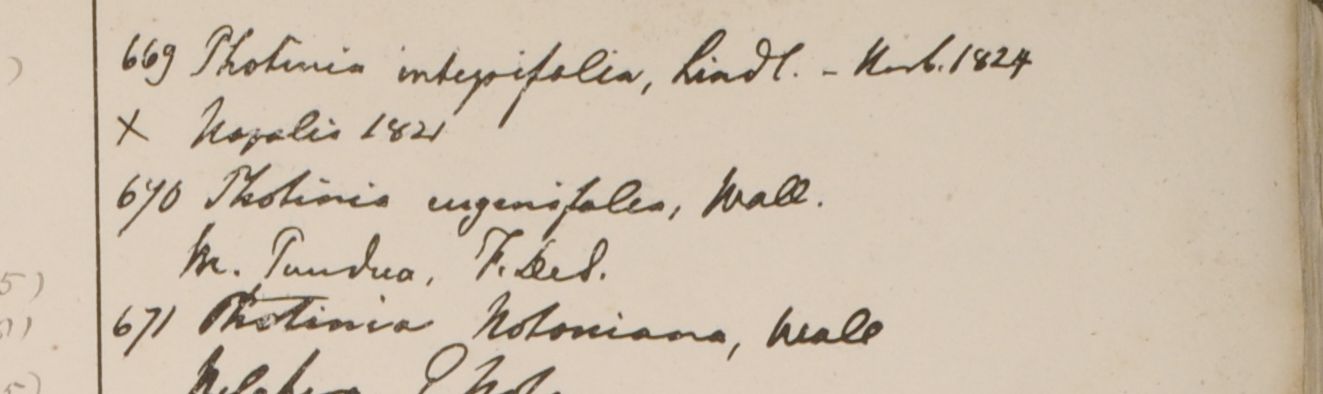 669 Photinia integrifolia, Lindl. - Herb. 1824
X Napalia 1821
670 Photinia eugenifolia, Wall.
M. Pundua, F. DeS.
671 Photinia Notoniana, Wall